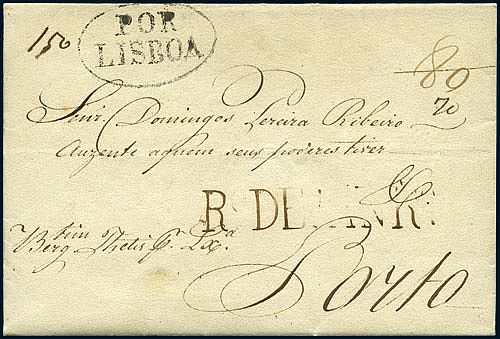 150
POR
LISBOA
80
70
Senr. Domingos Pereira Ribeiro
Auzente aquem seus poderes tiver
R. DE JANR.
Berg.tim Thetis P. Lx.a
Porto